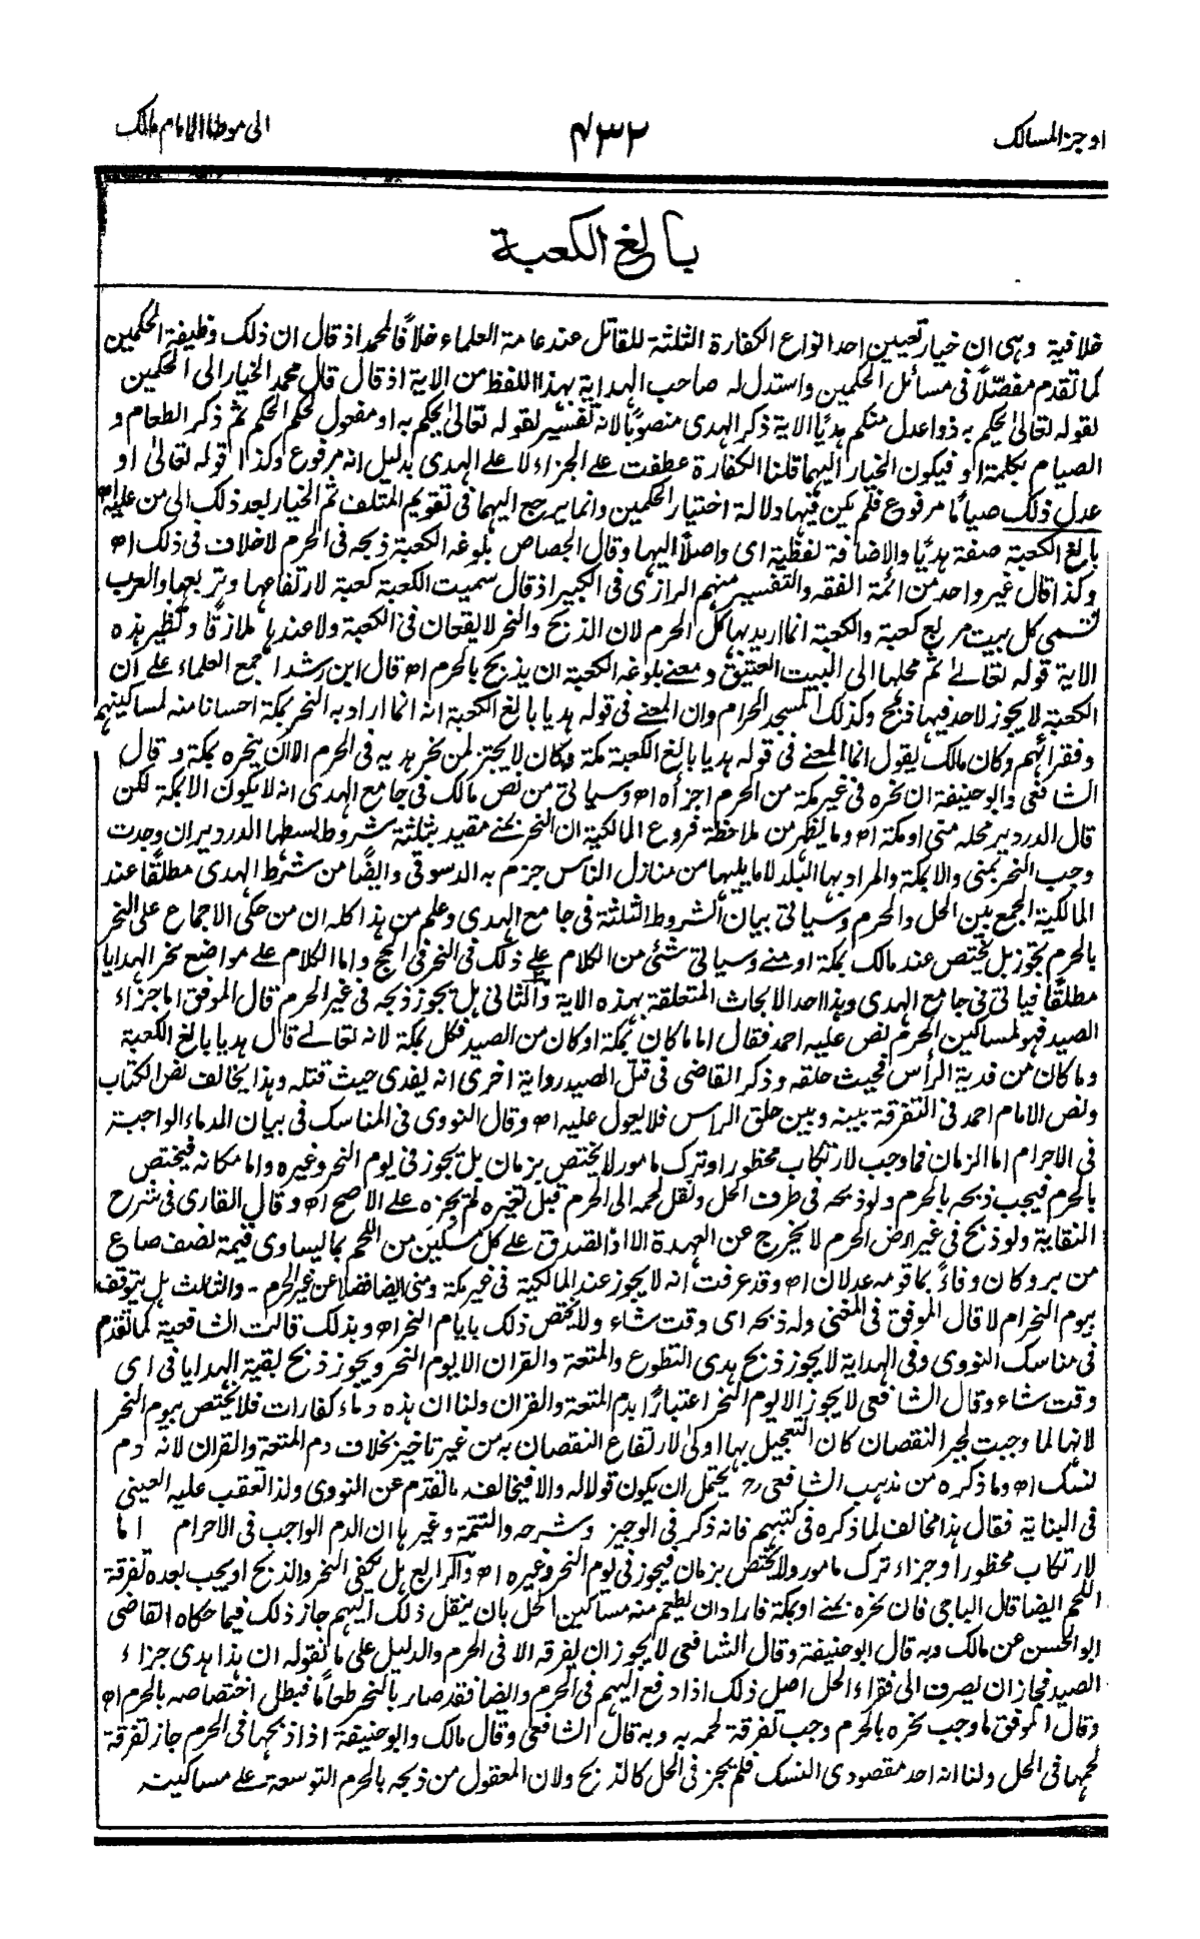 اوجز المسالك
٤٣٢
الى موطا الامام مالك
بالغ الكعبة
خلافية وهى ان خيار تعيين احد انواع الكفارة الثلثة للقاتل عند عامة العلماء خلافًا لمحمد اذ قال ان ذلك وظيفة الحكمين
كما تقدم مفصّلًا فى مسائل الحكمين واستدل له صاحب الهداية بهذا اللفظ من الاية اذ قال قال محمد الخيار الى الحكمين
لقوله تعالىٰ يحكم به ذوا عدل منكم هديًا الاية ذكر الهدى منصوبًا لانه تفسير لقوله تعالىٰ يحكم به او مفعول لحكم الحكم ثم ذكر الطعام و
الصيام بكلمة او فيكون الخيار اليهما قلنا الكفارة عطفت على الجزاء لا على الهدى بدليل انه مرفوع وكذا قوله تعالىٰ او
عدل ذلك صيامًا مرفوع فلم يكن فيها دلالة اختيار الحكمين وانما يرجع اليهما فى تقويم المتلف ثم الخيار بعد ذلك الى من عليه اھ
بالغ الكعبة صفة هديًا والاضافة لفظية اى واصلًا اليها وقال الجصاص بلوغه الكعبة ذبحه فى الحرم لاخلاف فى ذلك اھ
وكذا قال غير واحد من ائمة الفقه والتفسير منهم الرازى فى الكبير اذ قال سميت الكعبة كعبة لارتفاعها وتربعها والعرب
تسمى كل بيت مربع كعبة والكعبة انما اريد بها كل الحرم لان الذبح والنحر لا يقعان فى الكعبة ولا عندها ملازقًا ونظير هذه
الاية قوله تعالىٰ ثم محلها الى البيت العتيق ومعنى بلوغه الكعبة ان يذبح بالحرم اھ قال ابن رشد اجمع العلماء على ان
الكعبة لا يجوز لاحد فيها ذبح وكذلك المسجد الحرام وان المعنى فى قوله هديا بالغ الكعبة انه انما اراد به النحر بمكة احسانا منه لمساكينهم
وفقرائهم وكان مالك يقول انما المعنى فى قوله هديا بالغ الكعبة مكة وكان لا يجيز لمن نحر هديه فى الحرم الا ان ينحره بمكة وقال
الشافعى وابو حنيفة ان نحره فى غير مكة من الحرم اجزأه اھ وسياتى من نص مالك فى جامع الهدى انه لا يكون الا بمكة لكن
قال الدردير محله منى او مكة اھ وما يظهر من ملاحظة فروع المالكية ان النحر بمنى مقيد بثلثة شروط بسطها الدردير ان وجدت
وجب النحر بمنى والا بمكة والمراد بها البلد لا ما يليها من منازل الناس جزم به الدسوقى وايضًا من شرط الهدى مطلقًا عند
المالكية الجمع بين الحل والحرم وسياتى بيان الشروط الثلثة فى جامع الهدى وعلم من هذا كله ان من حكى الاجماع على النحر
بالحرم تجوز بل يختص عند مالك بمكة او منى وسياتى شئى من الكلام على ذلك فى النحر فى الحج واما الكلام على مواضع نحر الهدايا
مطلقًا فياتى فى جامع الهدى وهذا احد الابحاث المتعلقة بهذه الاية والثانى هل يجوز ذبحه فى غير الحرم قال الموفق اما جزاء
الصيد فهو لمساكين الحرم نص عليه احمد فقال اما ما كان بمكة او كان من الصيد فكل بمكة لانه تعالىٰ قال هديا بالغ الكعبة
وما كان من فدية الرأس فحيث حلقه وذكر القاضى فى قتل الصيد رواية اخرى انه يفدى حيث قتله وهذا يخالف نص الكتاب
ونص الامام احمد فى التفرقة بينه وبين حلق الراس فلا يعول عليه اھ وقال النووى فى المناسك فى بيان الدماء الواجبة
فى الاحرام اما الزمان فما وجب لارتكاب محظور او ترك مامور لا يختص بزمان بل يجوز فى يوم النحر وغيره واما مكانه فيختص
بالحرم فيجب ذبحه بالحرم ولو ذبحه فى طرف الحل ونقل لحمه الى الحرم قبل تغيره لم يجزه على الاصح اھ وقال القارى فى شرح
النقاية ولو ذبح فى غير ارض الحرم لا يخرج عن العهدة الا اذا تصدق على كل مسكين من اللحم بما يساوى قيمة نصف صاع
من بر وكان وفاءً بما قومه عدلان اھ وقد عرفت انه لا يجوز عند المالكية فى غير مكة ومنى ايضا فضلا عن غير الحرم - والثالث هل يتوقف
بيوم النحر ام لا قال الموفق فى المغنى وله ذبحه اى وقت شاء ولا يختص ذلك بايام النحر اھ وبذلك قالت الشافعية كما تقدم
فى مناسك النووى وفى الهداية لا يجوز ذبح هدى التطوع والمتعة والقران الا يوم النحر ويجوز ذبح بقية الهدايا فى اى
وقت شاء وقال الشافعى لا يجوز الا يوم النحر اعتبارًا بدم المتعة والقران ولنا ان هذه دماء كفارات فلا يختص بيوم النحر
لانها لما وجبت لجبر النقصان كان التعجيل بها اولىٰ لارتفاع النقصان به من غير تاخير بخلاف دم المتعة والقران لانه دم
نسك اھ وما ذكره من مذهب الشافعى رح يحتمل ان يكون قولا له والا فيخالفه ما تقدم عن النووى ولذا تعقب عليه العينى
فى البناية فقال هذا مخالف لما ذكره فى كتبهم فانه ذكر فى الوجيز وشرحه والتتمة وغيرها ان الدم الواجب فى الاحرام اما
لارتكاب محظور او جزاء ترك مامور ولا يختص بزمان فيجوز فى يوم النحر وغيره اھ والرابع هل يكفى النحر والذبح او يجب بعده تفرقة
اللحم ايضا قال الباجى فان نحره بمنى او بمكة فاراد ان يطعم منه مساكين الحل بان ينقل ذلك اليهم جاز ذلك فيما حكاه القاضى
ابو الحسن عن مالك وبه قال ابو حنيفة وقال الشافعى لا يجوز ان يفرقه الا فى الحرم والدليل على ما نقوله ان هذا هدى جزاء
الصيد فجاز ان يصرف الى فقراء الحل اصل ذلك اذا دفع اليهم فى الحرم وايضا فقد صار بالنحر طعامًا فيطل اختصاصه بالحرم اھ
وقال الموفق ما وجب نحره بالحرم وجب تفرقة لحمه به وبه قال الشافعى وقال مالك وابو حنيفة اذا ذبحها فى الحرم جاز تفرقة
لحمها فى الحل ولنا انه احد مقصودى النسك فلم يجز فى الحل كالذبح ولان المعقول من ذبحه بالحرم التوسعة على مساكينه